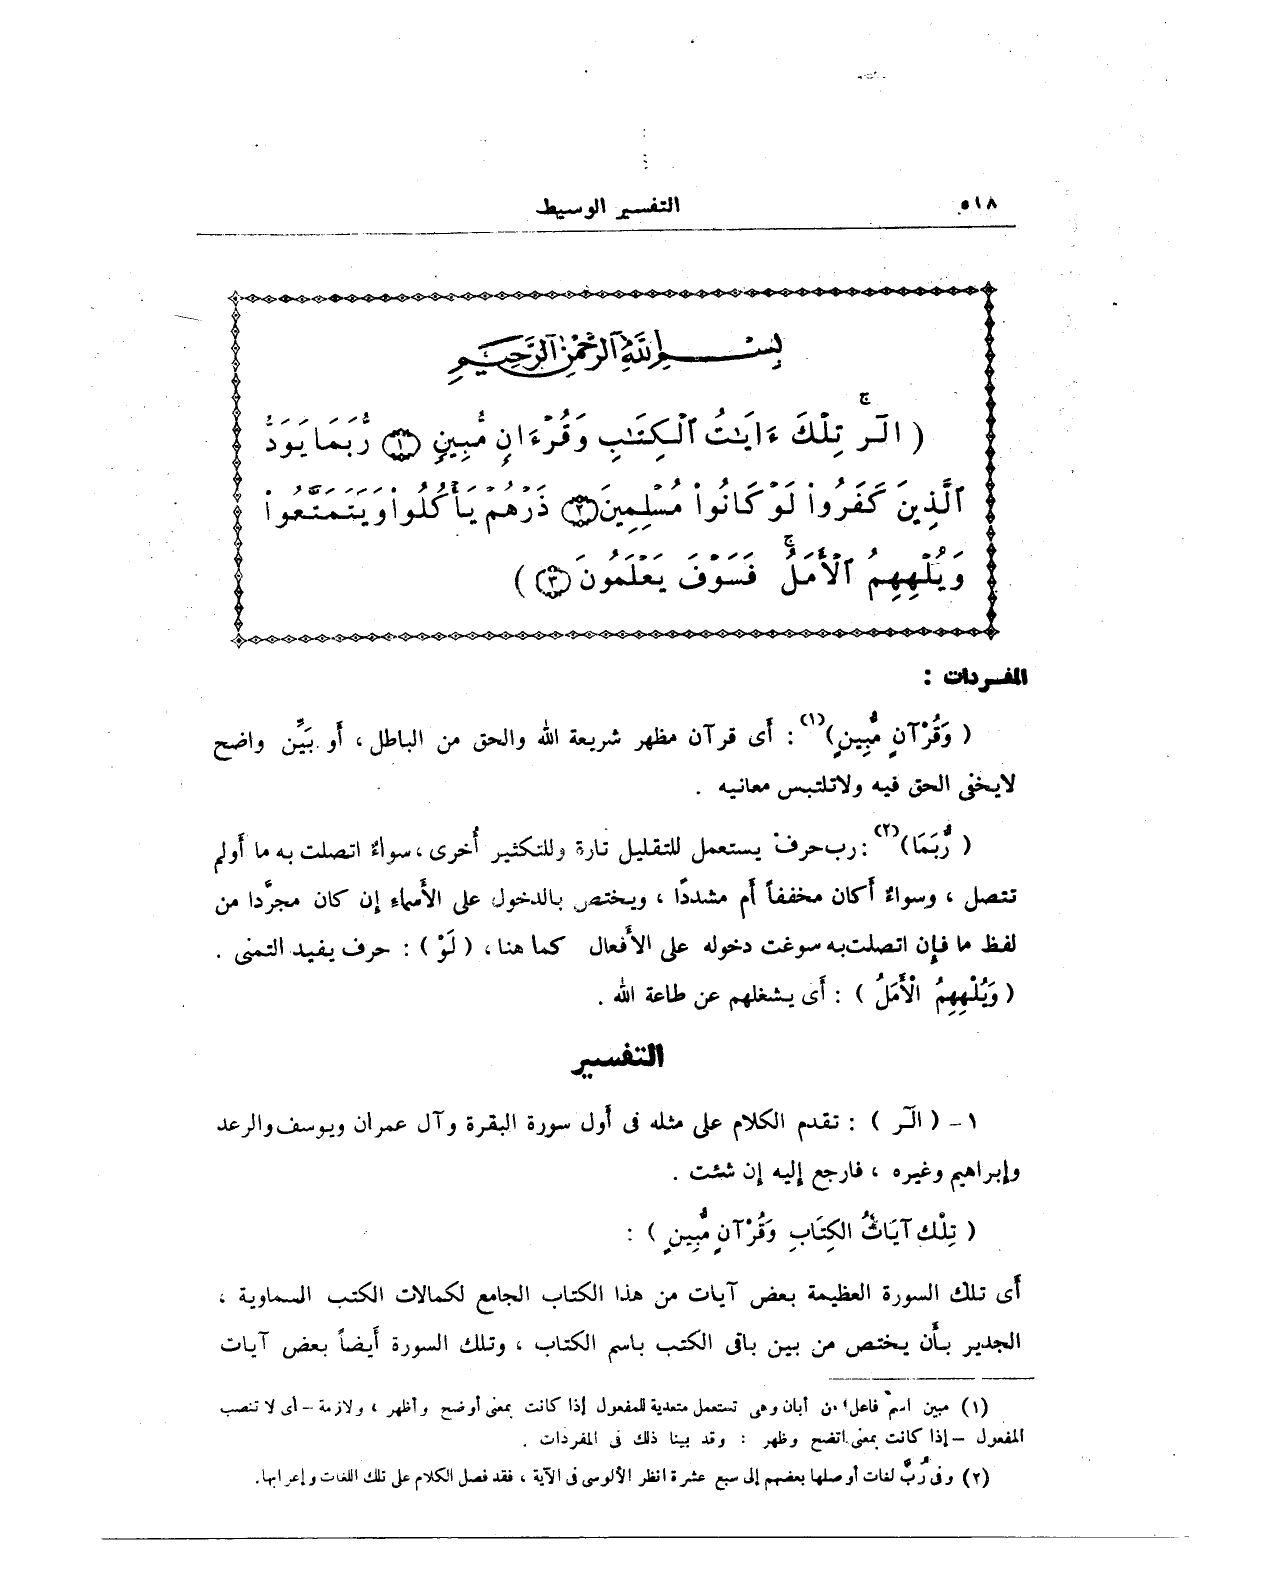 ٥١٨
التفسير الوسيط
بِسْمِ اللَّهِ الرَّحْمَٰنِ الرَّحِيمِ
( الٓر ۚ تِلْكَ ءَايَٰتُ ٱلْكِتَٰبِ وَقُرْءَانٍ مُّبِينٍ (١) رُّبَمَا يَوَدُّ
ٱلَّذِينَ كَفَرُوا۟ لَوْ كَانُوا۟ مُسْلِمِينَ (٢) ذَرْهُمْ يَأْكُلُوا۟ وَيَتَمَتَّعُوا۟
وَيُلْهِهِمُ ٱلْأَمَلُ ۚ فَسَوْفَ يَعْلَمُونَ (٣) )
المفردات :
( وَقُرْآنٍ مُّبِينٍ)(١) : أَى قرآن مظهر شريعة الله والحق من الباطل ، أَو بَيِّن واضح
لايخفى الحق فيه ولاتلتبس معانيه .
( رُّبَمَا)(٢) : رب حرفٌ يستعمل للتقليل تارة وللتكثير أُخرى ، سواءٌ اتصلت به ما أَولم
تتصل ، وسواءٌ أَكان مخففاً أَم مشددًا ، ويختص بالدخول على الأَسماءِ إِن كان مجرَّدا من
لفظ ما فإِن اتصلت به سوغت دخوله على الأَفعال كما هنا ، ( لَوْ ) : حرف يفيد التمنى .
( وَيُلْهِهِمُ الْأَمَلُ ) : أَى يشغلهم عن طاعة الله .
التفسير
١ - ( الٓر ) : تقدم الكلام على مثله فى أَول سورة البقرة وآل عمران ويوسف والرعد
وإبراهيم وغيره ، فارجع إليه إن شئت .
( تِلْكَ آيَاتُ الكِتَابِ وَقُرْآنٍ مُّبِينٍ ) :
أَى تلك السورة العظيمة بعض آيات من هذا الكتاب الجامع لكمالات الكتب السماوية ،
الجدير بأَن يختص من بين باقى الكتب باسم الكتاب ، وتلك السورة أَيضاً بعض آيات
(١) مبين اسم فاعل من أبان وهى تستعمل متعدية للمفعول إذا كانت بمعنى أوضح وأظهر ، ولازمة - أى لا تنصب
المفعول - إذا كانت بمعنى اتضح وظهر : وقد بينا ذلك فى المفردات .
(٢) وفى رُبَّ لغات أوصلها بعضهم إلى سبع عشرة انظر الألوسى فى الآية ، فقد فصل الكلام على تلك اللغات وإعرابها.